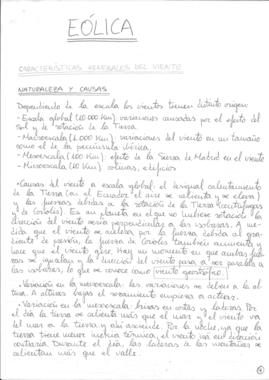 EÓLICA
CARACTERÍSTICAS GENERALES DEL VIENTO
NATURALEZA Y CAUSAS
Dependiendo de la escala los vientos tienen distinto origen
- Escala global (10.000 Km) variaciones causadas por el efecto del
Sol y de la rotación de la Tierra.
- Macroescala (1.000 Km) variaciones del viento en un tamaño
como el de la península ibérica.
- Mesoescala (100 Km): efecto de la Sierra de Madrid en el viento
- Microescala (10 Km) colinas, edificios
Causas del viento a escala global: el desigual calentamiento
de la Tierra (en el Ecuador el aire se calienta y se eleva)
y las fuerzas debidas a la rotación de la Tierra (centrífugas
y de Coriolis). En un planeta en el que no hubiese rotación la
dirección del viento sería perpendicular a las isobaras. A me-
dida que el viento se acelera por la fuerza debida al gra-
diente de presión, la fuerza de Coriolis también aumenta y
hace que el viento gire. Hay un momento en que ambas fuer-
zas se igualan y la dirección del viento pasa a ser paralela a
las isobaras, lo que se conoce como viento geostrófico.
Variación en la macroescala: las variaciones se deben a la al-
tura. A alturas bajas el rozamiento empieza a actuar.
Variación en la mesoescala: brisas en costas y laderas. Por
el día la tierra se calienta más que el mar el viento va
del mar a la tierra y ahí asciende. Por la noche, ya que la
tierra tiene menor inercia térmica, el viento va en dirección
contraria. Durante el día, las laderas de las montañas se
calientan más que el valle.
1